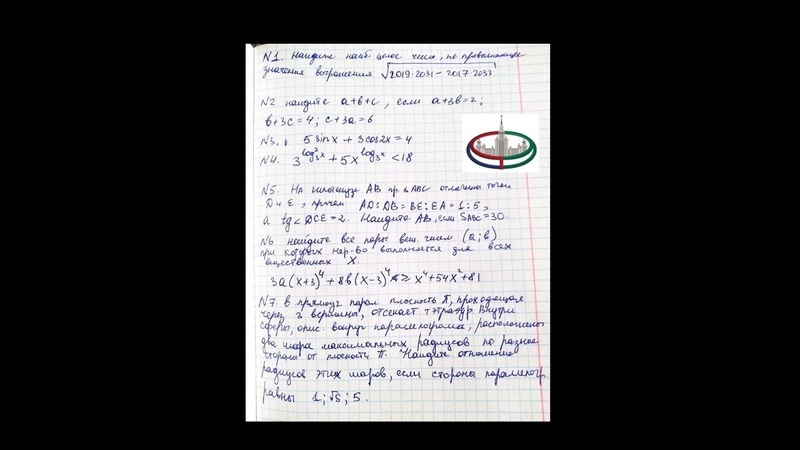 N1. Найдите наиб. целое число, не превышающее
значения выражения √2019·2031 − 2017·2033
N2 Найдите a+b+c, если a+3b=2;
b+3c=4; c+3a=6
N3. 5 sinx + 3cos2x = 4
N4. 3^log²₃x + 5x^log₃x < 18
N5. На гипотенузе AB пр. Δ ABC отмечены точки
D и E, причем AD:DB = BE:EA = 1:5,
а tg∠DCE=2. Найдите AB, если SABC=30.
N6 Найдите все пары вещ. чисел (a;b)
при которых нер-во выполняется для всех
вещественных X.
3a(x+3)⁴ + 8b(x−3)⁴ ≥ x⁴+54x²+81
N7. В прямоуг парал. плоскость π, проходящая
через 3 вершины, отсекает тэтраэдр. Внутри
сферы, опис. вокруг параллелограмма, расположены
два шара максимальных радиусов по разные
стороны от плоскости π. Найдите отношение
радиусов этих шаров, если стороны параллелогр.
равны 1; √5; 5.